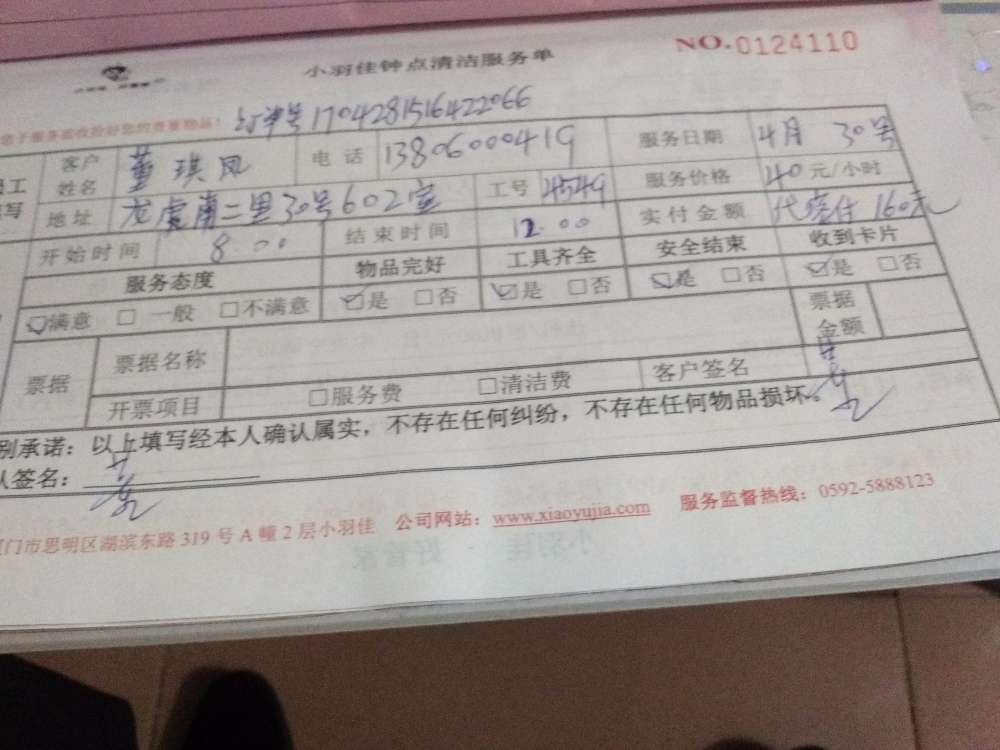 NO.0124110
小羽佳钟点清洁服务单
订单号1704281516422066
客户姓名 董琪凤 电话 13806000419 服务日期 4月30号
地址 龙虎南二里30号602室 工号 4549 服务价格 40元/小时
开始时间 8.00 结束时间 12.00 实付金额 160元
服务态度 物品完好 工具齐全 安全结束 收到卡片
☑满意 □一般 □不满意 ☑是 □否 ☑是 □否 ☑是 □否 ☑是 □否
票据 票据名称 票据金额
开票项目 □服务费 □清洁费 客户签名
别承诺：以上填写经本人确认属实，不存在任何纠纷，不存在任何物品损坏。
人签名：
门市思明区湖滨东路319号A幢2层小羽佳 公司网站：www.xiaoyujia.com 服务监督热线：0592-5888123